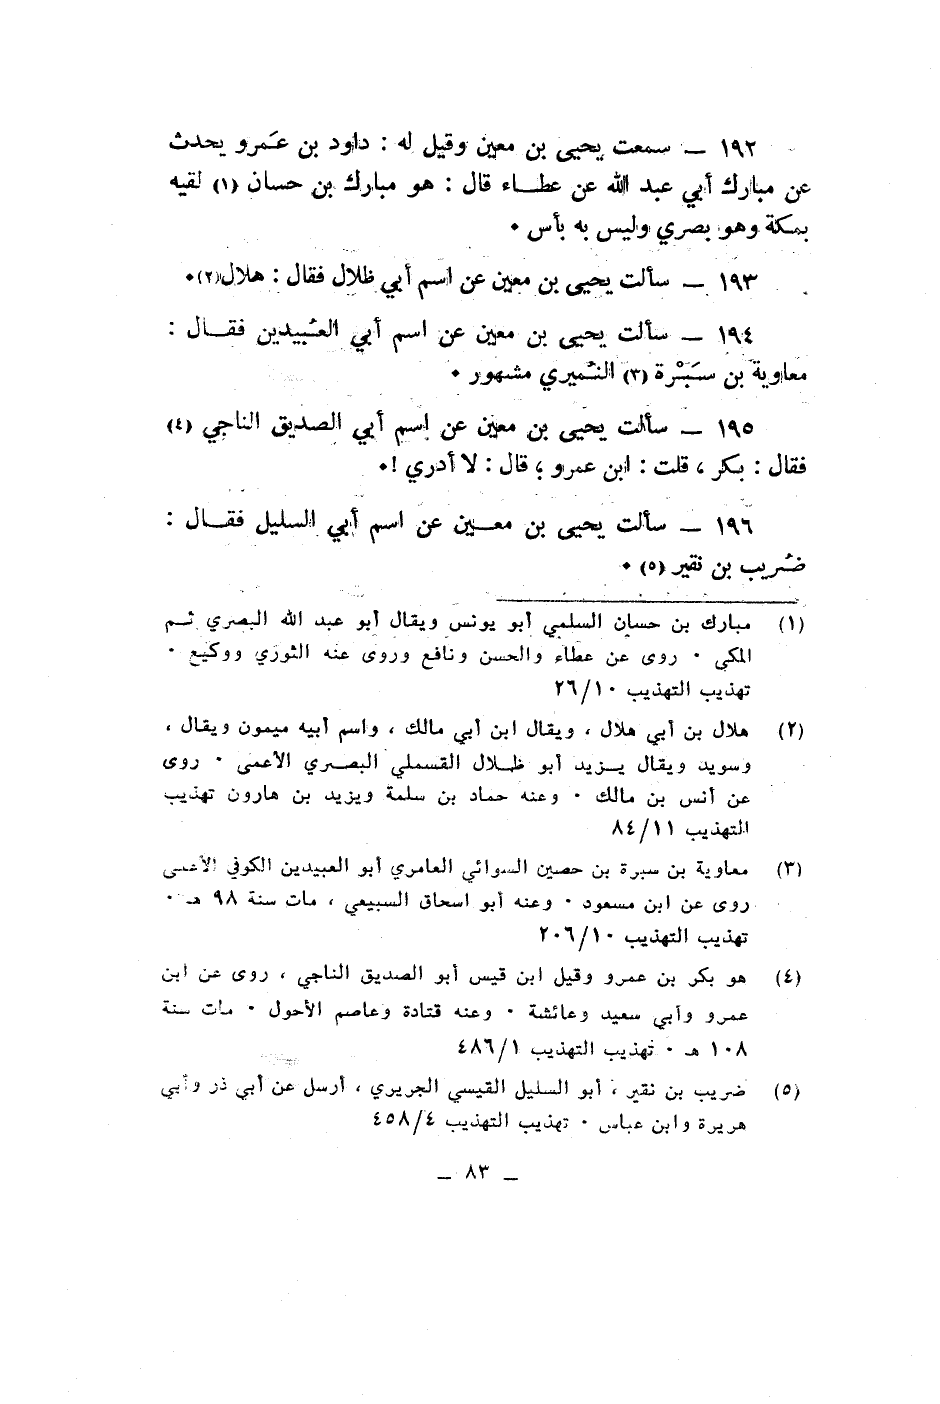 ١٩٢ — سمعت يحيى بن معين وقيل له : داود بن عَمرو يحدث
عن مبارك أبي عبد الله عن عطاء قال : هو مبارك بن حسان (١) لقيه
بمكة وهو بصري وليس به بأس •
١٩٣ — سألت يحيى بن معين عن اسم أبي ظلال فقال : هلال(٢)•
١٩٤ — سألت يحيى بن معين عن اسم أبي العُبيدين فقال :
معاوية بن سَبْرة (٣) النُميري مشهور •
١٩٥ — سألت يحيى بن معين عن إسم أبي الصديق الناجي (٤)
فقال : بكر ، قلت : ابن عمرو ؟ قال : لا أدري !•
١٩٦ — سألت يحيى بن معين عن اسم أبي السليل فقال :
ضُريب بن نقير (٥) •
(١) مبارك بن حسان السلمي أبو يونس ويقال أبو عبد الله البصري ثم
المكي • روى عن عطاء والحسن ونافع وروى عنه الثوري ووكيع •
تهذيب التهذيب ٢٦/١٠
(٢) هلال بن أبي هلال ، ويقال ابن أبي مالك ، واسم أبيه ميمون ويقال ،
وسويد ويقال يزيد أبو ظلال القسملي البصري الأعمى • روى
عن أنس بن مالك • وعنه حماد بن سلمة ويزيد بن هارون تهذيب
التهذيب ٨٤/١١
(٣) معاوية بن سبرة بن حصين السوائي العامري أبو العبيدين الكوفي الأعمى
روى عن ابن مسعود • وعنه أبو اسحاق السبيعي ، مات سنة ٩٨ هـ •
تهذيب التهذيب ٢٠٦/١٠
(٤) هو بكر بن عمرو وقيل ابن قيس أبو الصديق الناجي ، روى عن ابن
عمرو وأبي سعيد وعائشة • وعنه قتادة وعاصم الأحول • مات سنة
١٠٨ هـ • تهذيب التهذيب ٤٨٦/١
(٥) ضريب بن نقير ، أبو السليل القيسي الجريري ، أرسل عن أبي ذر وأبي
هريرة وابن عباس • تهذيب التهذيب ٤٥٨/٤
— ٨٣ —